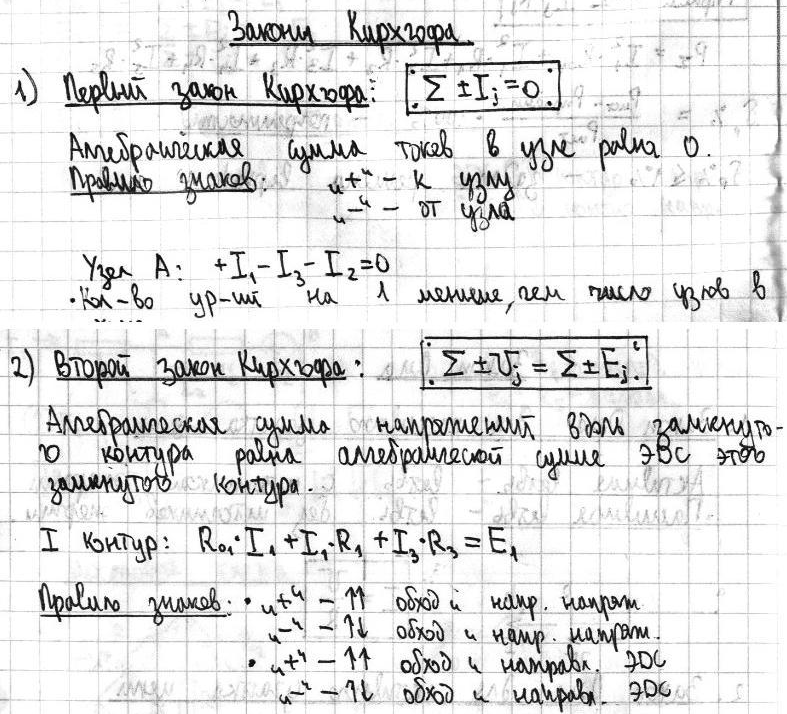 Законы Кирхгофа
1) Первый закон Кирхгофа: Σ ±Ij = 0
Алгебраическая сумма токов в узле равна 0.
Правило знаков: „+“ – к узлу
„–“ – от узла
Узел А: +I₁ – I₃ – I₂ = 0
• Кол-во ур-ий на 1 меньше, чем число узлов в
2) Второй закон Кирхгофа: Σ ±Uj = Σ ±Ej
Алгебраическая сумма напряжений вдоль замкнуто-
го контура равна алгебраической сумме ЭДС этого
замкнутого контура.
I контур: R₀₁·I₁ + I₁·R₁ + I₃·R₃ = E₁
Правило знаков: • „+“ – ↑↑ обход и напр. напряж.
„–“ – ↑↓ обход и напр. напряж.
• „+“ – ↑↑ обход и направл. ЭДС
„–“ – ↑↓ обход и направл. ЭДС